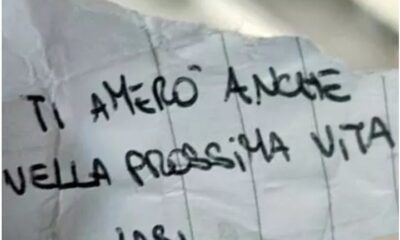 TI AMERÒ ANCHE
NELLA PROSSIMA VITA